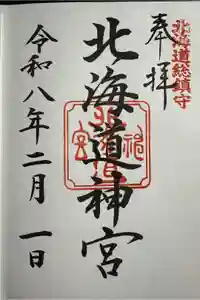 北海道総鎮守
奉拝
北海道神宮
北海道神宮
令和八年二月一日